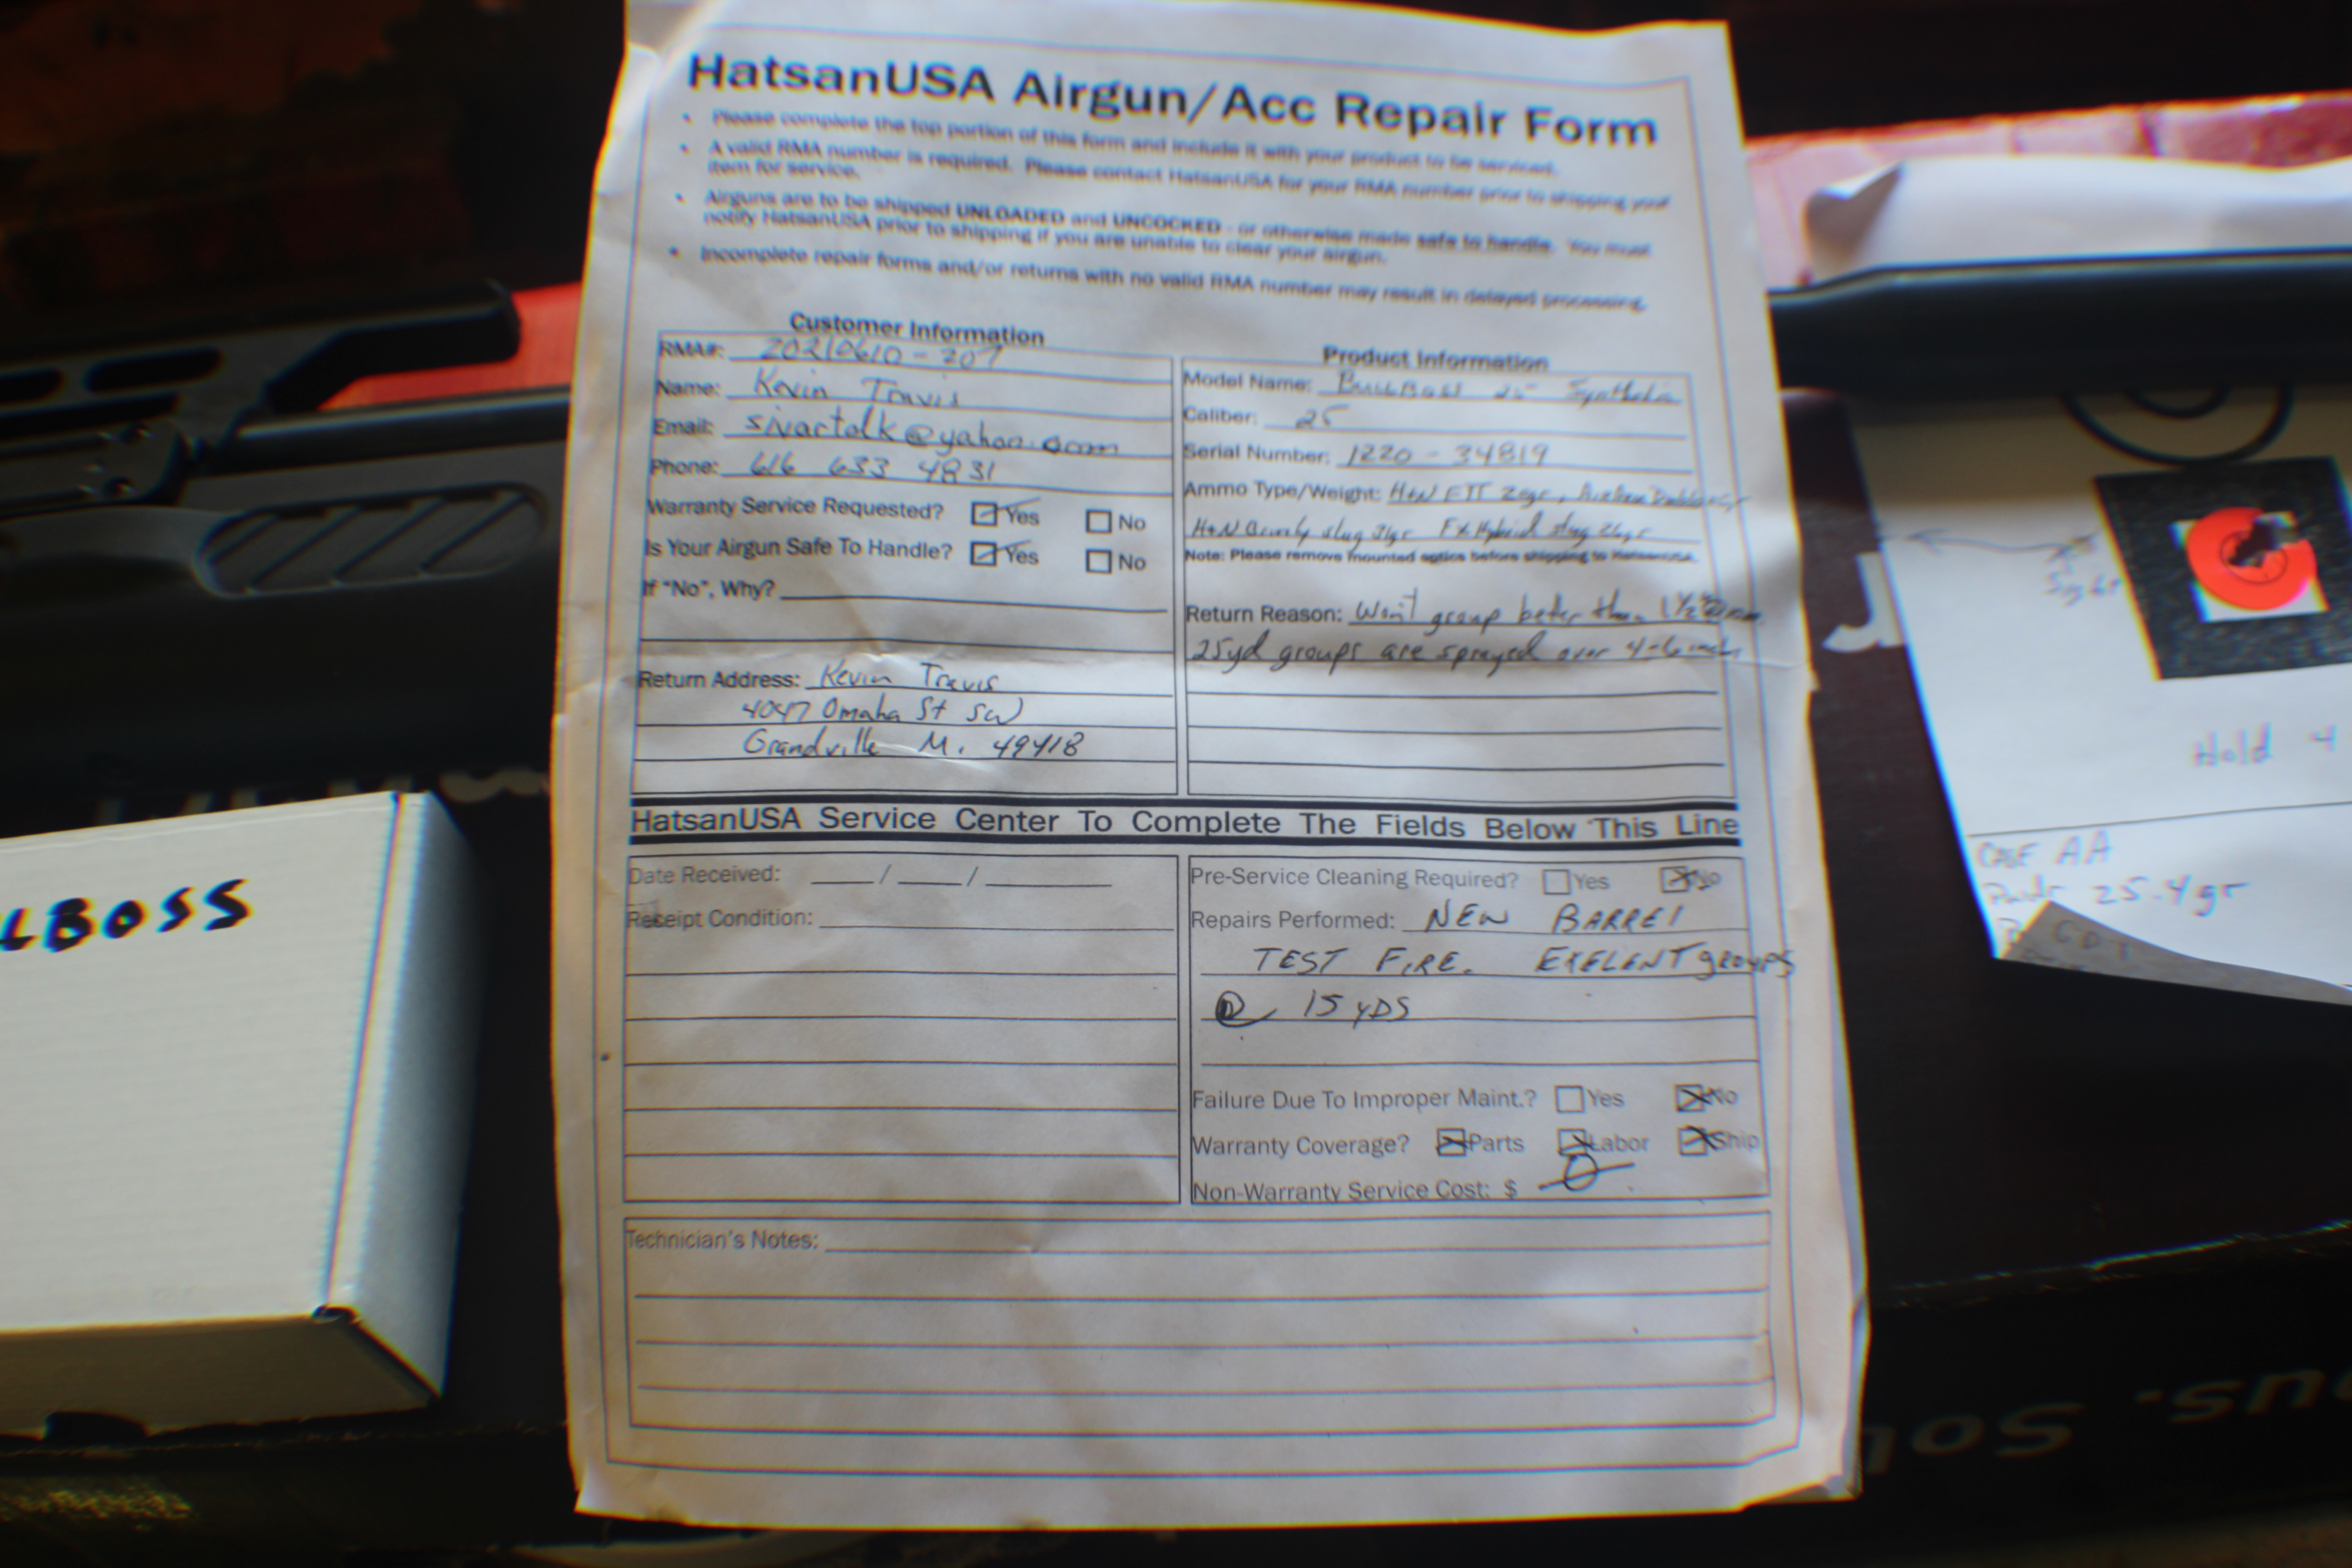 HatsanUSA Airgun/Acc Repair Form
• Please complete the top portion of this form and include it with your product to be serviced.
• A valid RMA number is required. Please contact HatsanUSA for your RMA number prior to shipping your
item for service.
• Airguns are to be shipped UNLOADED and UNCOCKED - or otherwise made safe to handle. You must
notify HatsanUSA prior to shipping if you are unable to clear your airgun.
• Incomplete repair forms and/or returns with no valid RMA number may result in delayed processing.
Customer Information
RMA#: 20210610-207
Name: Kevin Travis
Email: sivartalk@yahoo.com
Phone: 616 633 4831
Warranty Service Requested? Yes No
Is Your Airgun Safe To Handle? Yes No
If "No", Why?
Return Address: Kevin Travis
4047 Omaha St SW
Grandville Mi 49418
Product Information
Model Name: BullBoss 25 Synthetic
Caliber: 25
Serial Number: 1220-34819
Ammo Type/Weight: H+N FTT 20gr,
H+N slug 31gr FX Hybrid slug 26gr
Note: Please remove mounted optics before shipping to HatsanUSA.
Return Reason: Won't group better than 1½"
25yd groups are sprayed over 4-6 inch
HatsanUSA Service Center To Complete The Fields Below This Line
Date Received: / /
Receipt Condition:
Pre-Service Cleaning Required? Yes No
Repairs Performed: NEW BARREl
TEST FIRE. EXELENT groups
@ 15 YDS
Failure Due To Improper Maint.? Yes No
Warranty Coverage? Parts Labor Ship
Non-Warranty Service Cost: $ 0
Technician's Notes:
LBOSS
Hold 4
AA
25.4gr
us. Sou